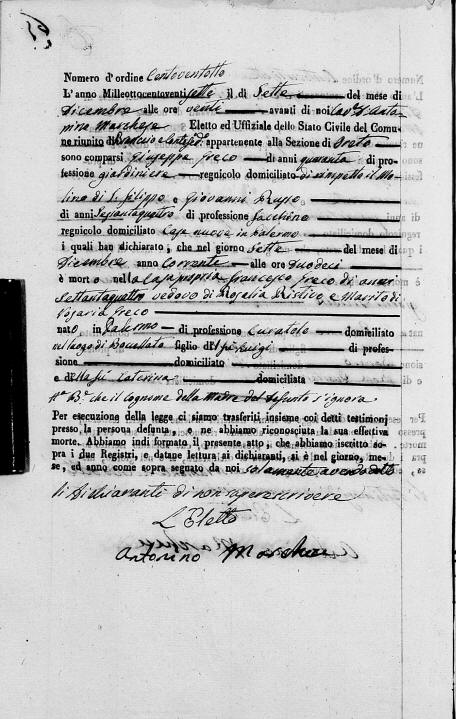 Numero d'ordine Centoventotto
L'anno Milleottocentoventisette il dì Sette del mese di
Dicembre alle ore venti avanti di noi Cav. D. Anto-
nino Marchese Eletto ed Uffiziale dello Stato Civile del Comu-
ne riunito di appartenente alla Sezione di Oreto
sono comparsi Giuseppe Greco di anni quaranta di pro-
fessione giardiniere regnicolo domiciliato di rimpetto il Mo-
lino di S. Filippo e Giovanni Russo
di anni Sessantaquattro di professione facchino
regnicolo domiciliato Casa nuova in Palermo
i quali han dichiarato, che nel giorno Sette del mese di
Dicembre anno Corrente alle ore Duodeci
è morto nella Casa propria Francesco Greco di anni
Settantaquattro vedovo di Rosalia e Marito di
Rosaria Greco
nato in Palermo di professione Curatolo domiciliato
nel luogo di figlio del fu Luigi di profes-
sione domiciliato
e della fu Caterina domiciliata
N.a B.e che il Cognome della Madre del defunto s'ignora
Per esecuzione della legge ci siamo trasferiti insieme coi detti testimonj
presso la persona defunta, e ne abbiamo riconosciuta la sua effettiva
morte. Abbiamo indi formato il presente atto, che abbiamo iscritto so-
pra i due Registri, e datane lettura ai dichiaranti, si è nel giorno, me-
se, ed anno come sopra segnato da noi solamente avendo detto
li Dichiaranti di non sapere scrivere
L'Eletto
Antonino Marchese